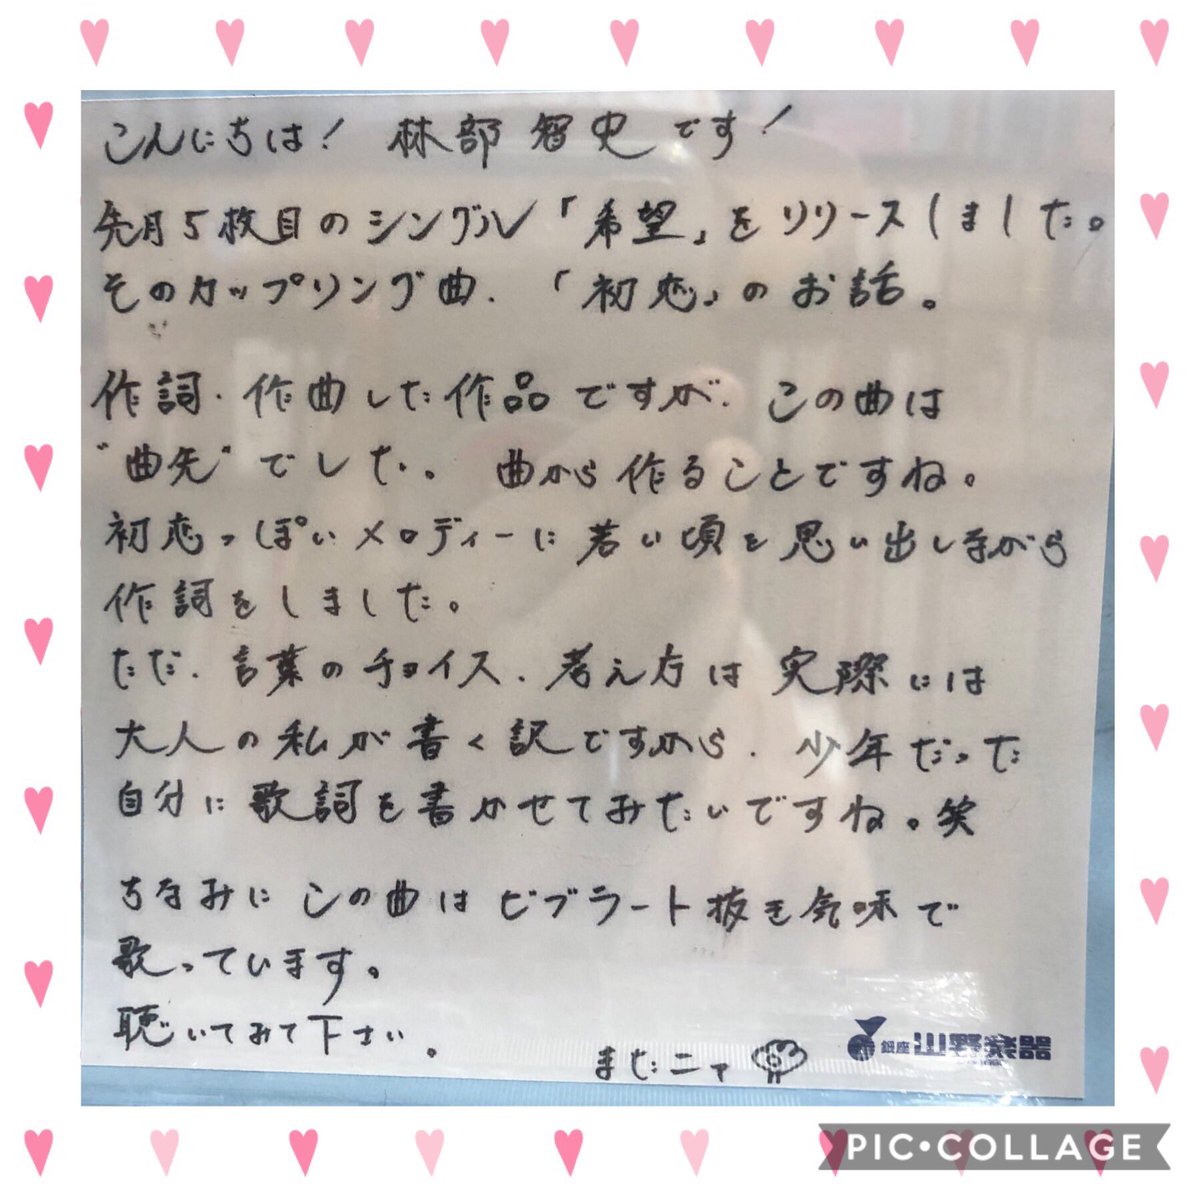 こんにちは! 林部智史です!
先月5枚目のシングル「希望」をリリースしました。
そのカップリング曲.「初恋」のお話。
作詞.作曲した作品ですが.この曲は
"曲先"でした。曲から作ることですね。
初恋っぽいメロディーに若い頃を思い出しながら
作詞をしました。
ただ.言葉のチョイス.考え方は実際には
大人の私が書く訳ですから.少年だった
自分に歌詞を書かせてみたいですね。笑
ちなみにこの曲はビブラート抜き気味で
歌っています。
聴いてみて下さい。
また
銀座山野楽器
PIC•COLLAGE